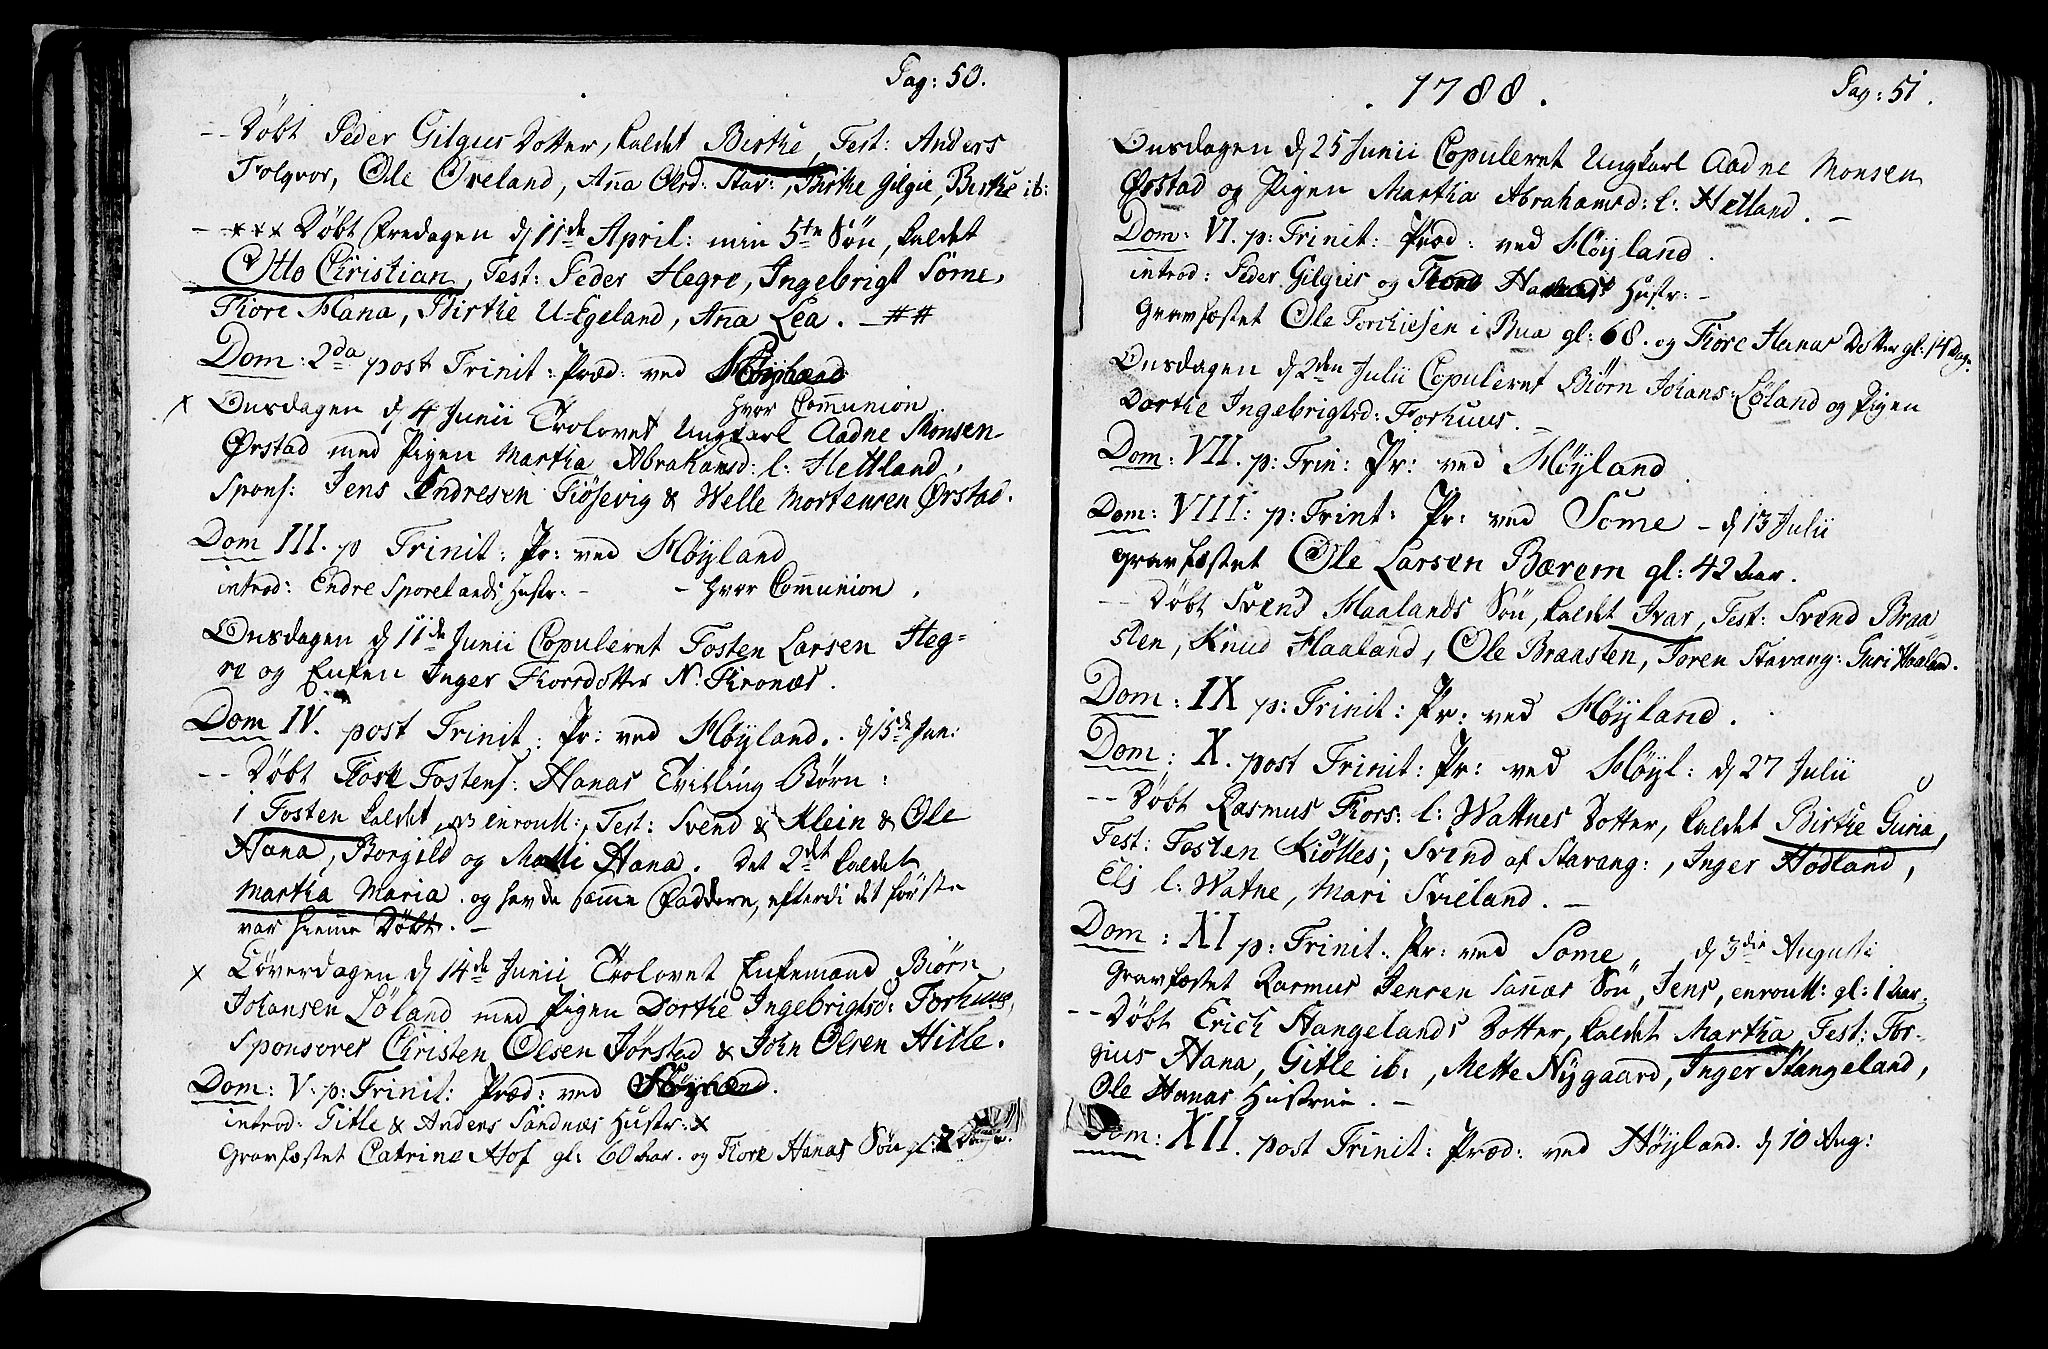 Pag: 50.
-- Døbt Peder Gilgies Dotter, kaldet Birthe, Test: Anders
Folqvor, Ole Øveland, Aña Olsd: Stav:, Birthe Gilgie, Birthe ib:
- *** Døbt Fredagen d 11de April: min 5te Søn, kaldet
Otto Christian, Test: Peder Hegre, Ingebrigt Sôme,
Tiore Hana, Birthe U-Egeland, Aña Lea. - ##
Dom: 2da post Trinit: Præd: ved Høyland
hvor Com̃union.
x Onsdagen d 4 Junii Trolovet Ungkarl Aadne Monsen
Ørstad med Pigen Martha Abrahamsd: l: Hettland,
Spons: Jens Endresen Tiösevig & Welle Mortensen Ørstad.
Dom III. p Trinit: Pr: ved Høyland
introd: Endre Sporelands Hustr: - - hvor Com̃union.
Onsdagen d 11de Junii Copuleret Tosten Larsen Heg=
re og Enken Inger Tiorsdotter N. Tronæs.
Dom IV. post Trinit: Pr: ved Høyland. d 15de Jun:
-- Døbt Tostens: Hanas Tvilling Børn:
1 Tosten kaldet, enroull:, Test: Svend & Klein & Ole
Hana, Borgild og Malli Hana. Det 2det kaldet
Martha Maria. og havde sam̃e Faddere, efterdi det første
var hiem̃e Døbt. -
x Löverdagen d 14de Junii Trolovet Enkemand Biörn
Johansen Löland med Pigen Dorthe Ingebrigtsd: Forhuus,
Sponsores Christen Olsen Jørstad & John Olsen Hitle.
Dom: V. p: Trinit: Præd: ved Høyland.
introd: Gitle & Anders Sandnæs Hustr: x
Gravfæstet Catrine Hof gl: 60 Aar. og Tiore Hanas Søn gl: 2
. 1788. Pag: 51.
Onsdagen d 25 Junii Copuleret Ungkarl Aadne Monsen
Ørstad og Pigen Martha Abrahamsd: l: Hetland. -
Dom: VI. p: Trinit: Præd: ved Høyland.
introd: Peder Gilgies og Tiore Hanas Hustr: -
Gravfæstet Ole Torchiesen i Bua gl: 68. og Tiore Hanas Dotter gl: 14 Dag:
Onsdagen d 2den Julii Copuleret Biørn Johans: Løland og Pigen
Dorthe Ingebrigtsd: Forhuus. -
Dom: VII. p: Trin: Pr: ved Høyland.
Dom: VIII: p: Trint: Pr: ved Sôme - d 13 Julii
gravfæstet Ole Larsen Bærem gl: 42 Aar.
-- Døbt Svend Haalands Søn, kaldet Ivar, Test: Svend Braa
sten, Knud Haaland, Ole Braasten, Soren Stavang: Guri Haaland.
Dom: IX p: Trinit: Pr: ved Høyland.
Dom: X. post Trinit: Pr: ved Høyl: d 27 Julii
-- Døbt Rasmus Tiors: l: Wattnes Dotter, kaldet Birthe Guria,
Test: Tosten Kiölles, Svend af Stavang:, Inger Hodland,
Elj l: Watne, Mari Svieland. -
Dom: XI p: Trinit: Pr: ved Some, d 3die Augusti
Gravfæstet Rasmus Jensen Sañas Søn, Jens, enroull: gl: 1 Aar.
-- Døbt Erich Stangelands Dotter, kaldet Martha, Test: Tor-
gius Hana, Gitle ib:, Mette Nygaard, Inger Stangeland,
Ole Hanas Hustrue. -
Dom: XII. post Trinit: Præd: ved Høyland. d 10 Aug: